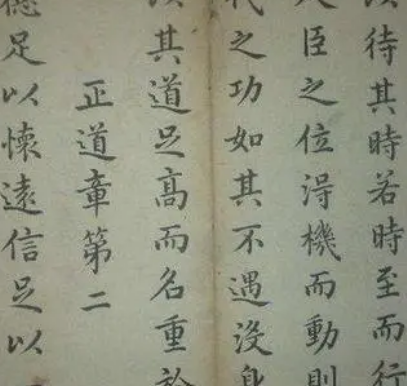 以待其時若時至而行
人臣之位得機而動則
代之功如其不遇沒身
以其道足高而名重於
正道章第二
德足以懷遠信足以